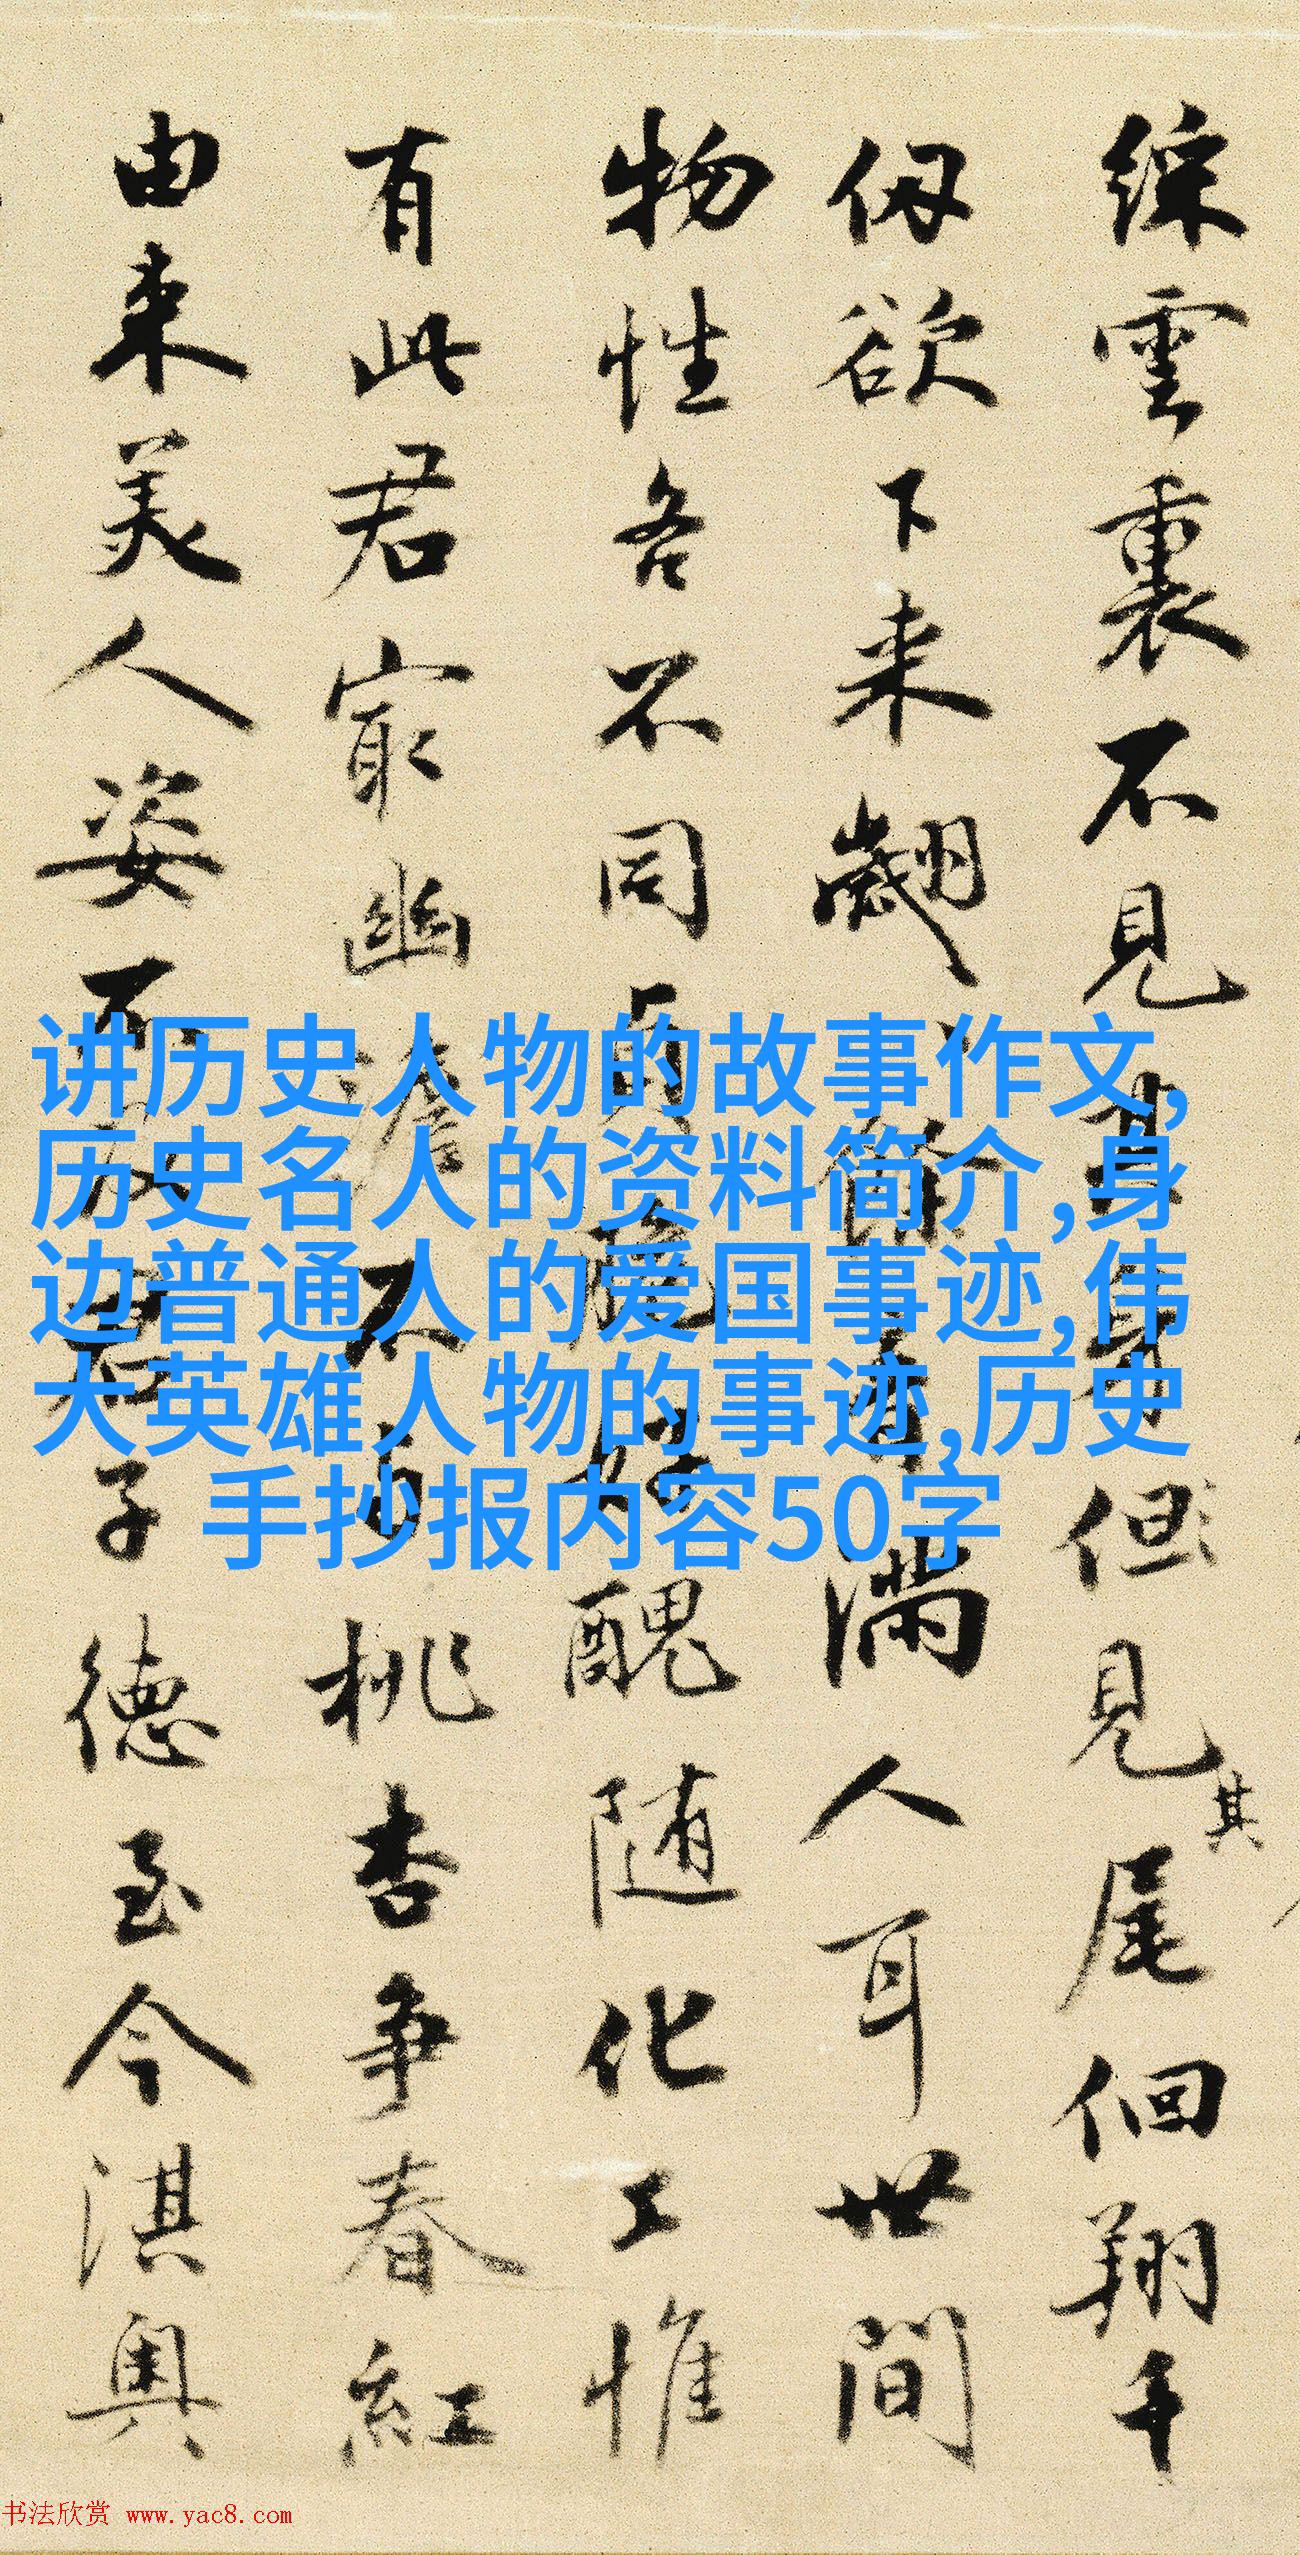 綵雲裏不見其身但見其尾佪翔千
仭欲下来翽音滿人耳世間
物性各不同醜随化工惟
有此君寂幽澹不与桃杏争春紅
由来美人姿不君子德至今淇奥
讲历史人物的故事作文,
历史名人的资料简介,身
边普通人的爱国事迹,伟
大英雄人物的事迹,历史
手抄报内容50字
书法欣赏 www.yac8.com